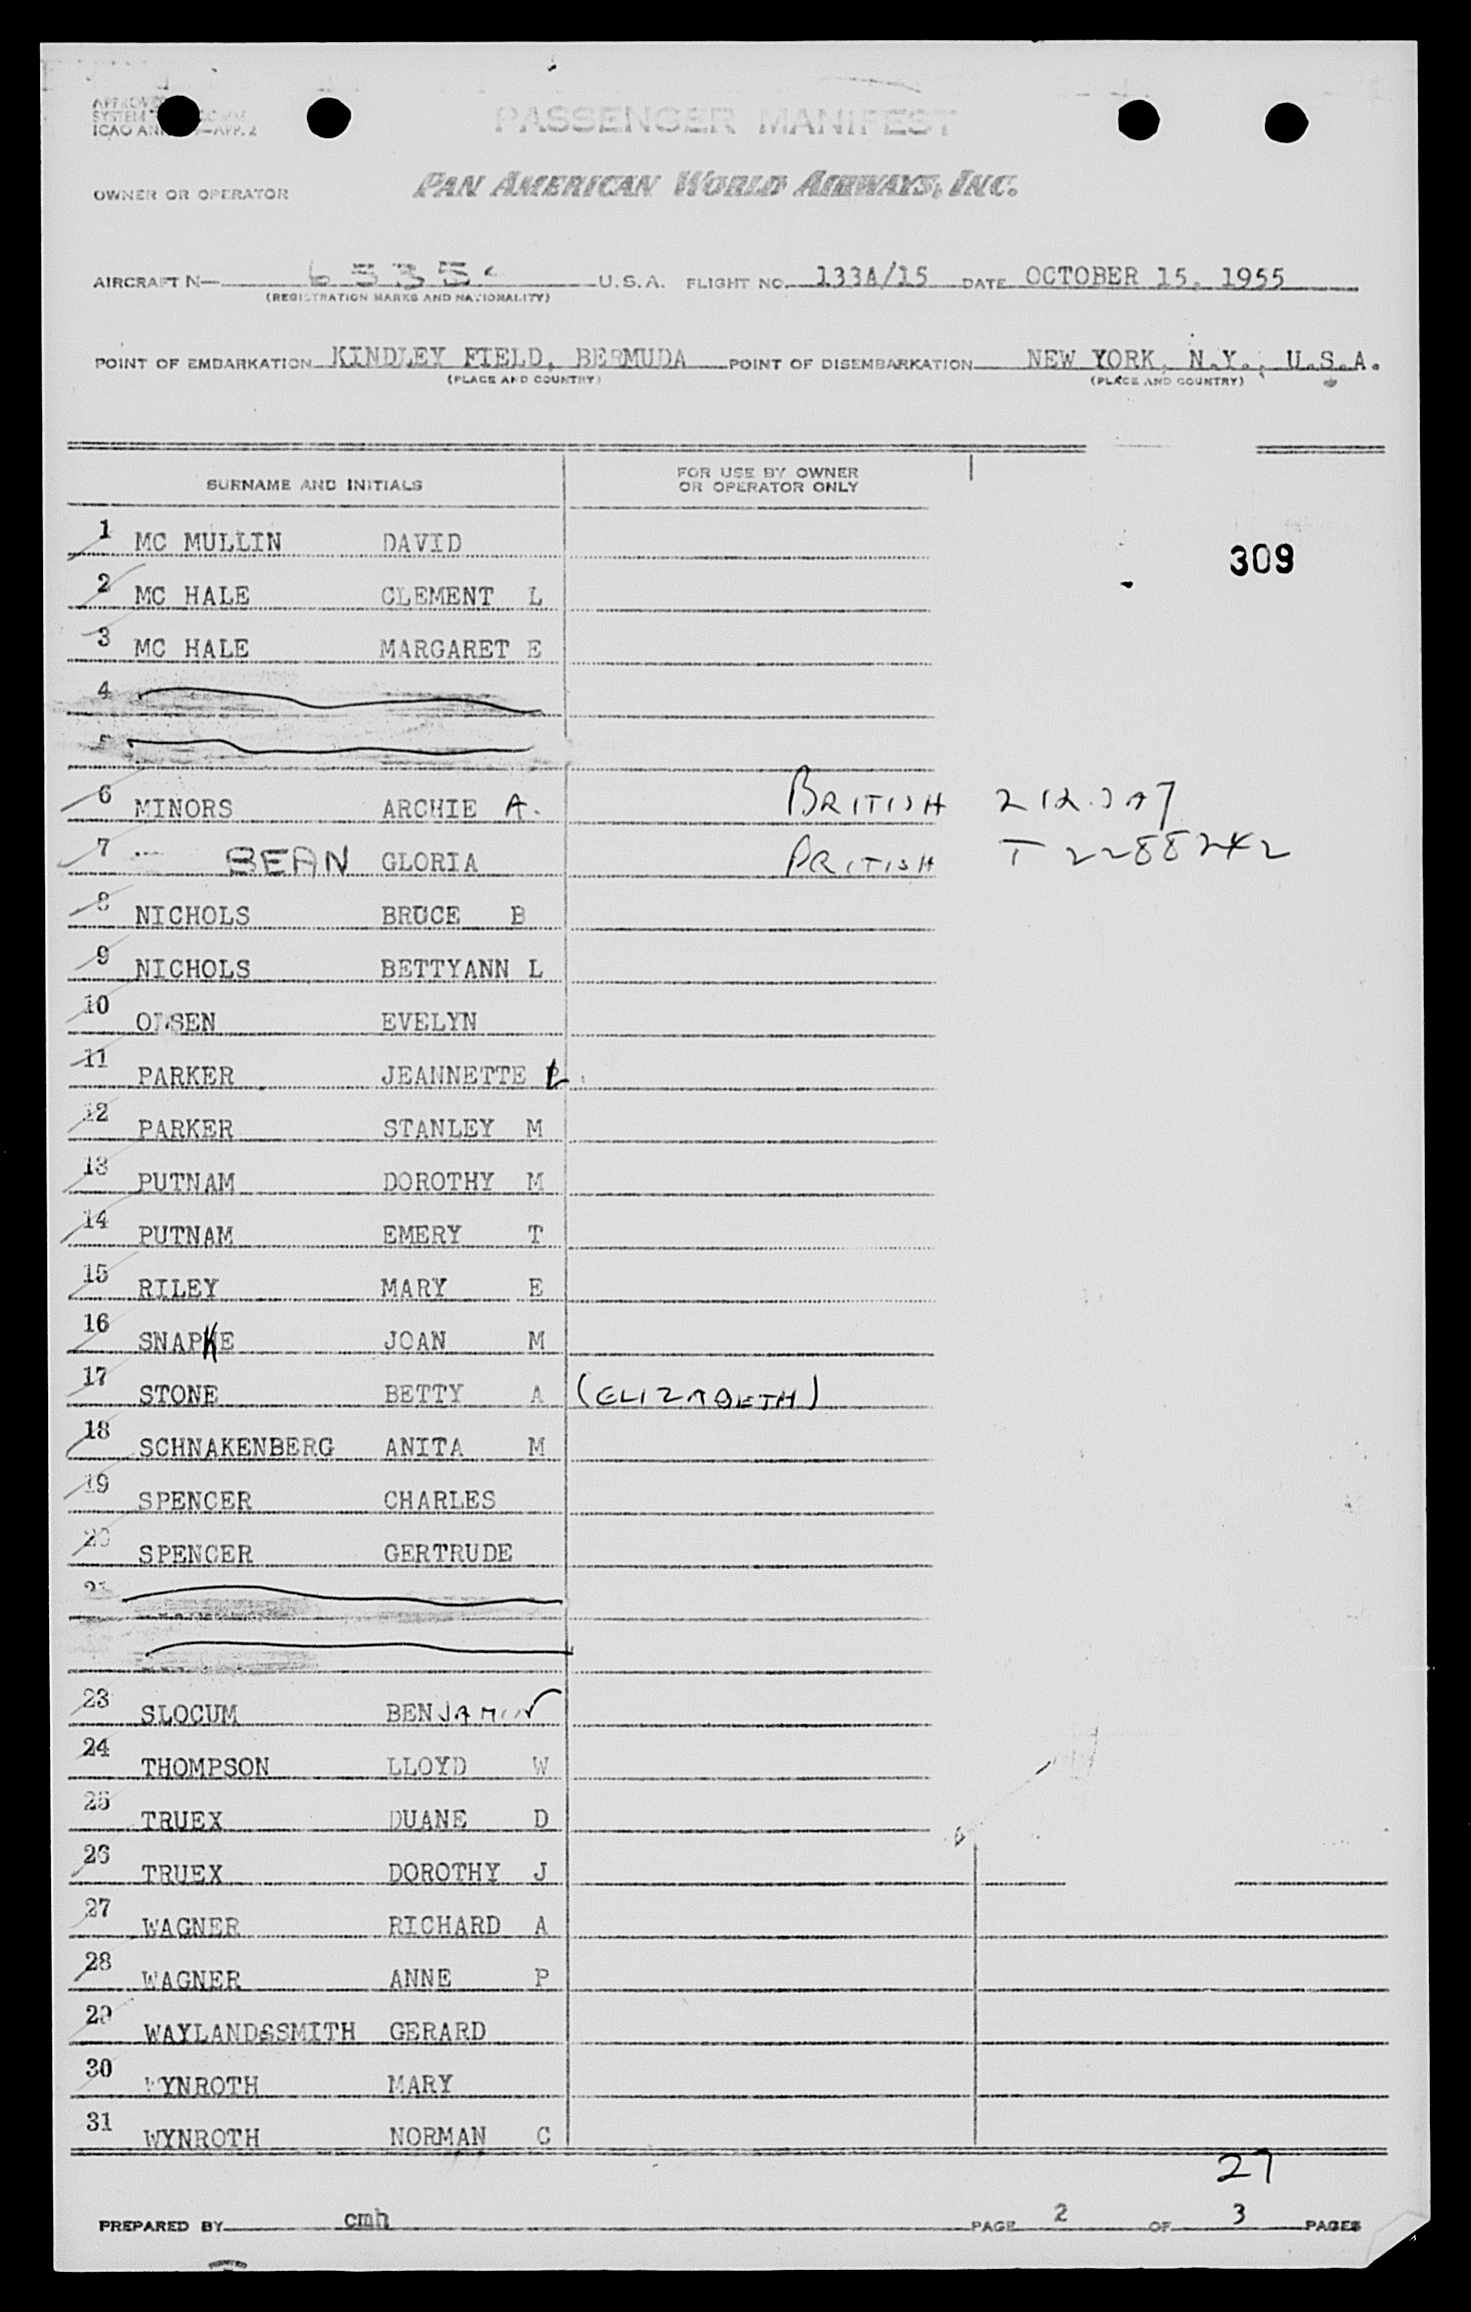 PASSENGER MANIFEST
ICAO ANN —APP. 2
OWNER OR OPERATOR PAN AMERICAN WORLD AIRWAYS, INC.
AIRCRAFT N— U.S.A. FLIGHT NO. 133A/15 DATE OCTOBER 15, 1955
(REGISTRATION MARKS AND NATIONALITY)
POINT OF EMBARKATION KINDLEY FIELD, BERMUDA POINT OF DISEMBARKATION NEW YORK, N.Y., U.S.A.
(PLACE AND COUNTRY) (PLACE AND COUNTRY)
SURNAME AND INITIALS FOR USE BY OWNER OR OPERATOR ONLY
1 MC MULLIN DAVID
309
2 MC HALE CLEMENT L
3 MC HALE MARGARET E
4
5
6 MINORS ARCHIE A. BRITISH
7 BEAN GLORIA BRITISH T 2288242
8 NICHOLS BRUCE B
9 NICHOLS BETTYANN L
10 OLSEN EVELYN
11 PARKER JEANNETTE L
12 PARKER STANLEY M
13 PUTNAM DOROTHY M
14 PUTNAM EMERY T
15 RILEY MARY E
16 SNAPKE JOAN M
17 STONE BETTY A (ELIZABETH)
18 SCHNAKENBERG ANITA M
19 SPENCER CHARLES
20 SPENCER GERTRUDE
21
23 SLOCUM BENJAMIN
24 THOMPSON LLOYD W
25 TRUEX DUANE D
26 TRUEX DOROTHY J
27 WAGNER RICHARD A
28 WAGNER ANNE P
29 WAYLANDSSMITH GERARD
30 WYNROTH MARY
31 WYNROTH NORMAN C
27
PREPARED BY cmh PAGE 2 OF 3 PAGES